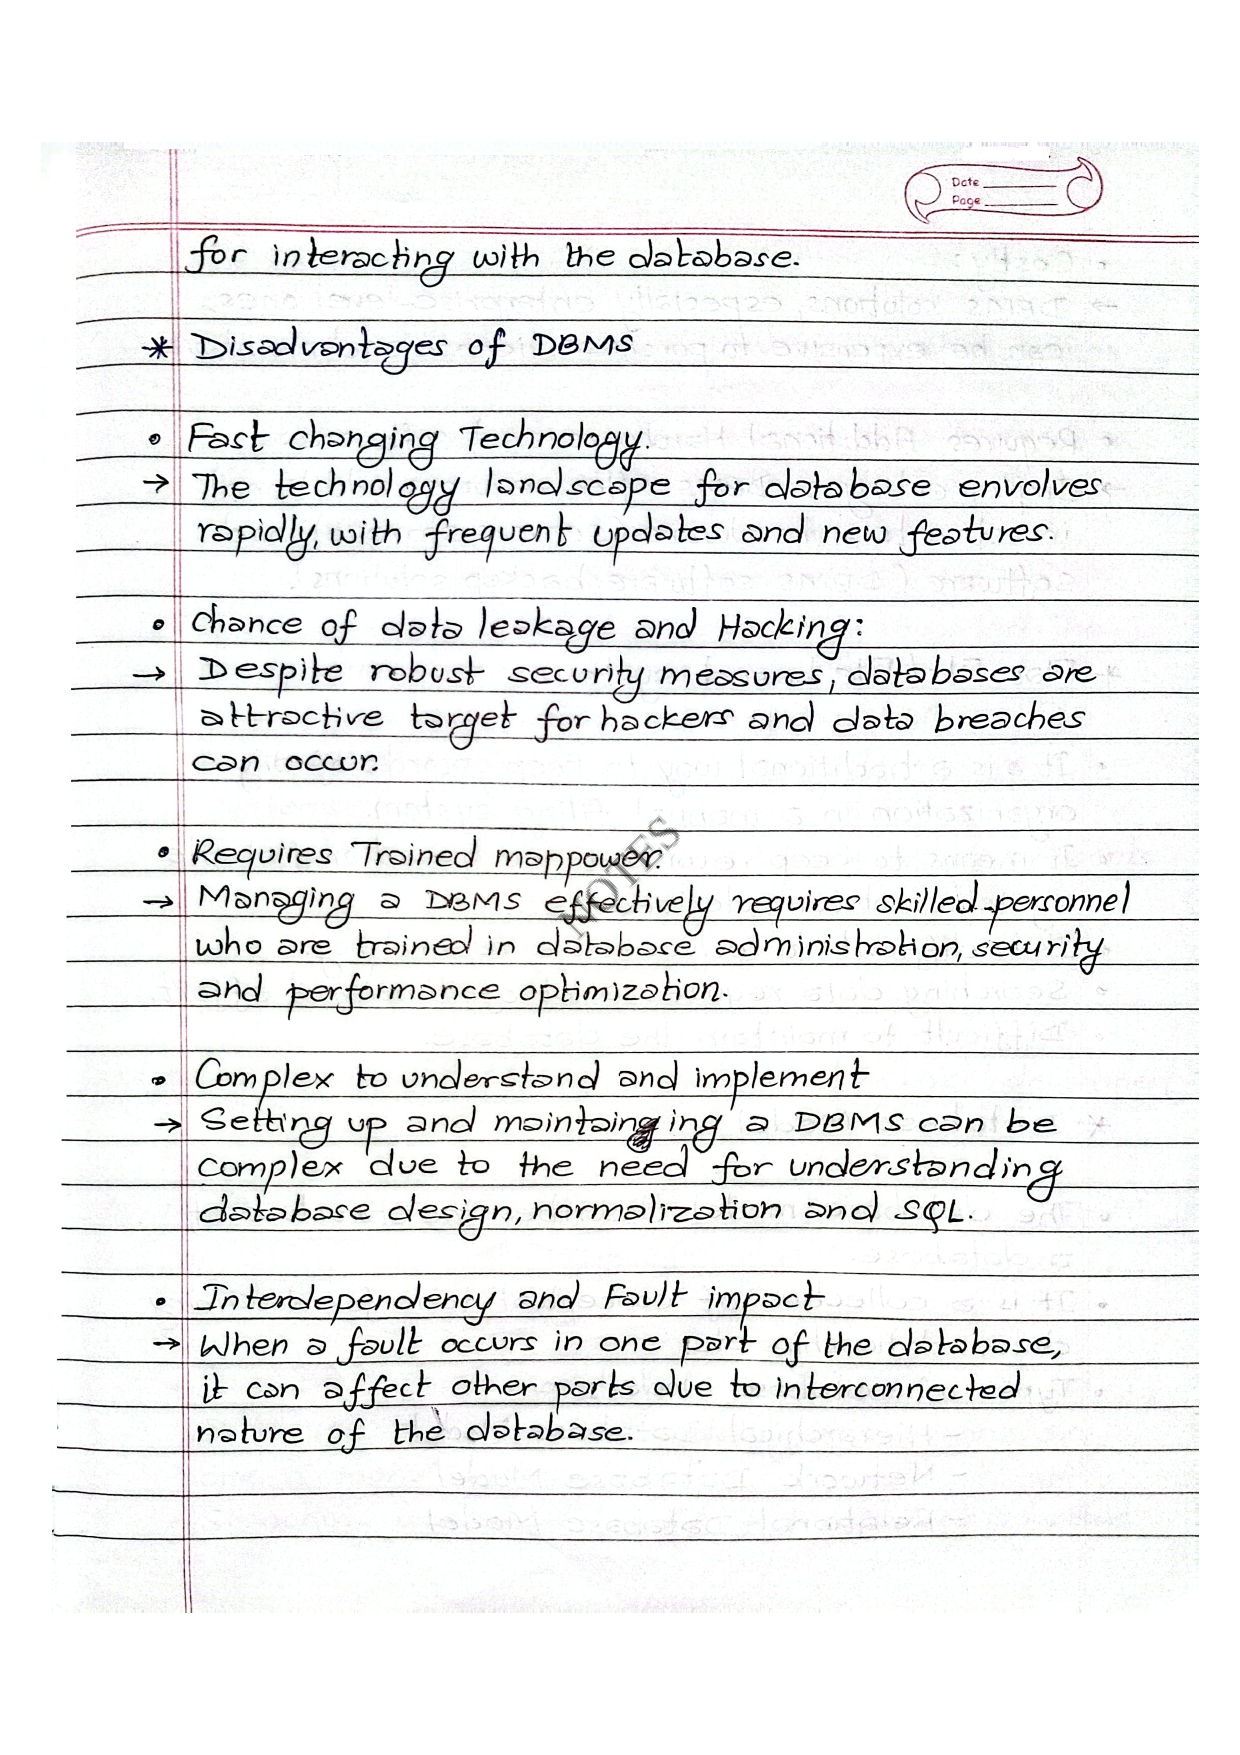 Date
Page
for interacting with the database.
* Disadvantages of DBMS
• Fast changing Technology.
→ The technology landscape for database envolves
rapidly, with frequent updates and new features.
• Chance of data leakage and Hacking:
→ Despite robust security measures, databases are
attractive target for hackers and data breaches
can occur.
• Requires Trained manpower.
→ Managing a DBMS effectively requires skilled personnel
who are trained in database administration, security
and performance optimization.
NOTES
• Complex to understand and implement
→ Setting up and maintaining a DBMS can be
complex due to the need for understanding
database design, normalization and SQL.
• Interdependency and Fault impact
→ When a fault occurs in one part of the database,
it can affect other parts due to interconnected
nature of the database.